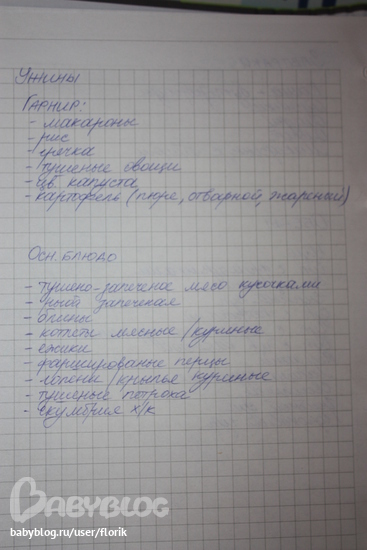 Ужины
Гарнир:
- макароны
- рис
- гречка
- тушеные овощи
- цв. капуста
- картофель (пюре, отварной, жареный)
Осн. блюдо
- тушено-запеченое мясо кусочками
запеченая
- блины
- котлеты мясные/куриные
- ежики
- фаршированые перцы
крылья куриные
- тушеные потроха
- скумбрия х/к
BABYBLOG
babyblog.ru/user/florik